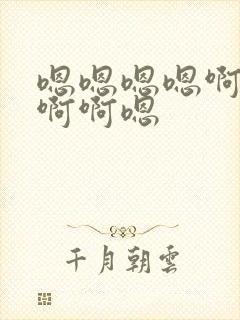 嗯嗯嗯嗯啊
啊啊嗯
千月朝雲